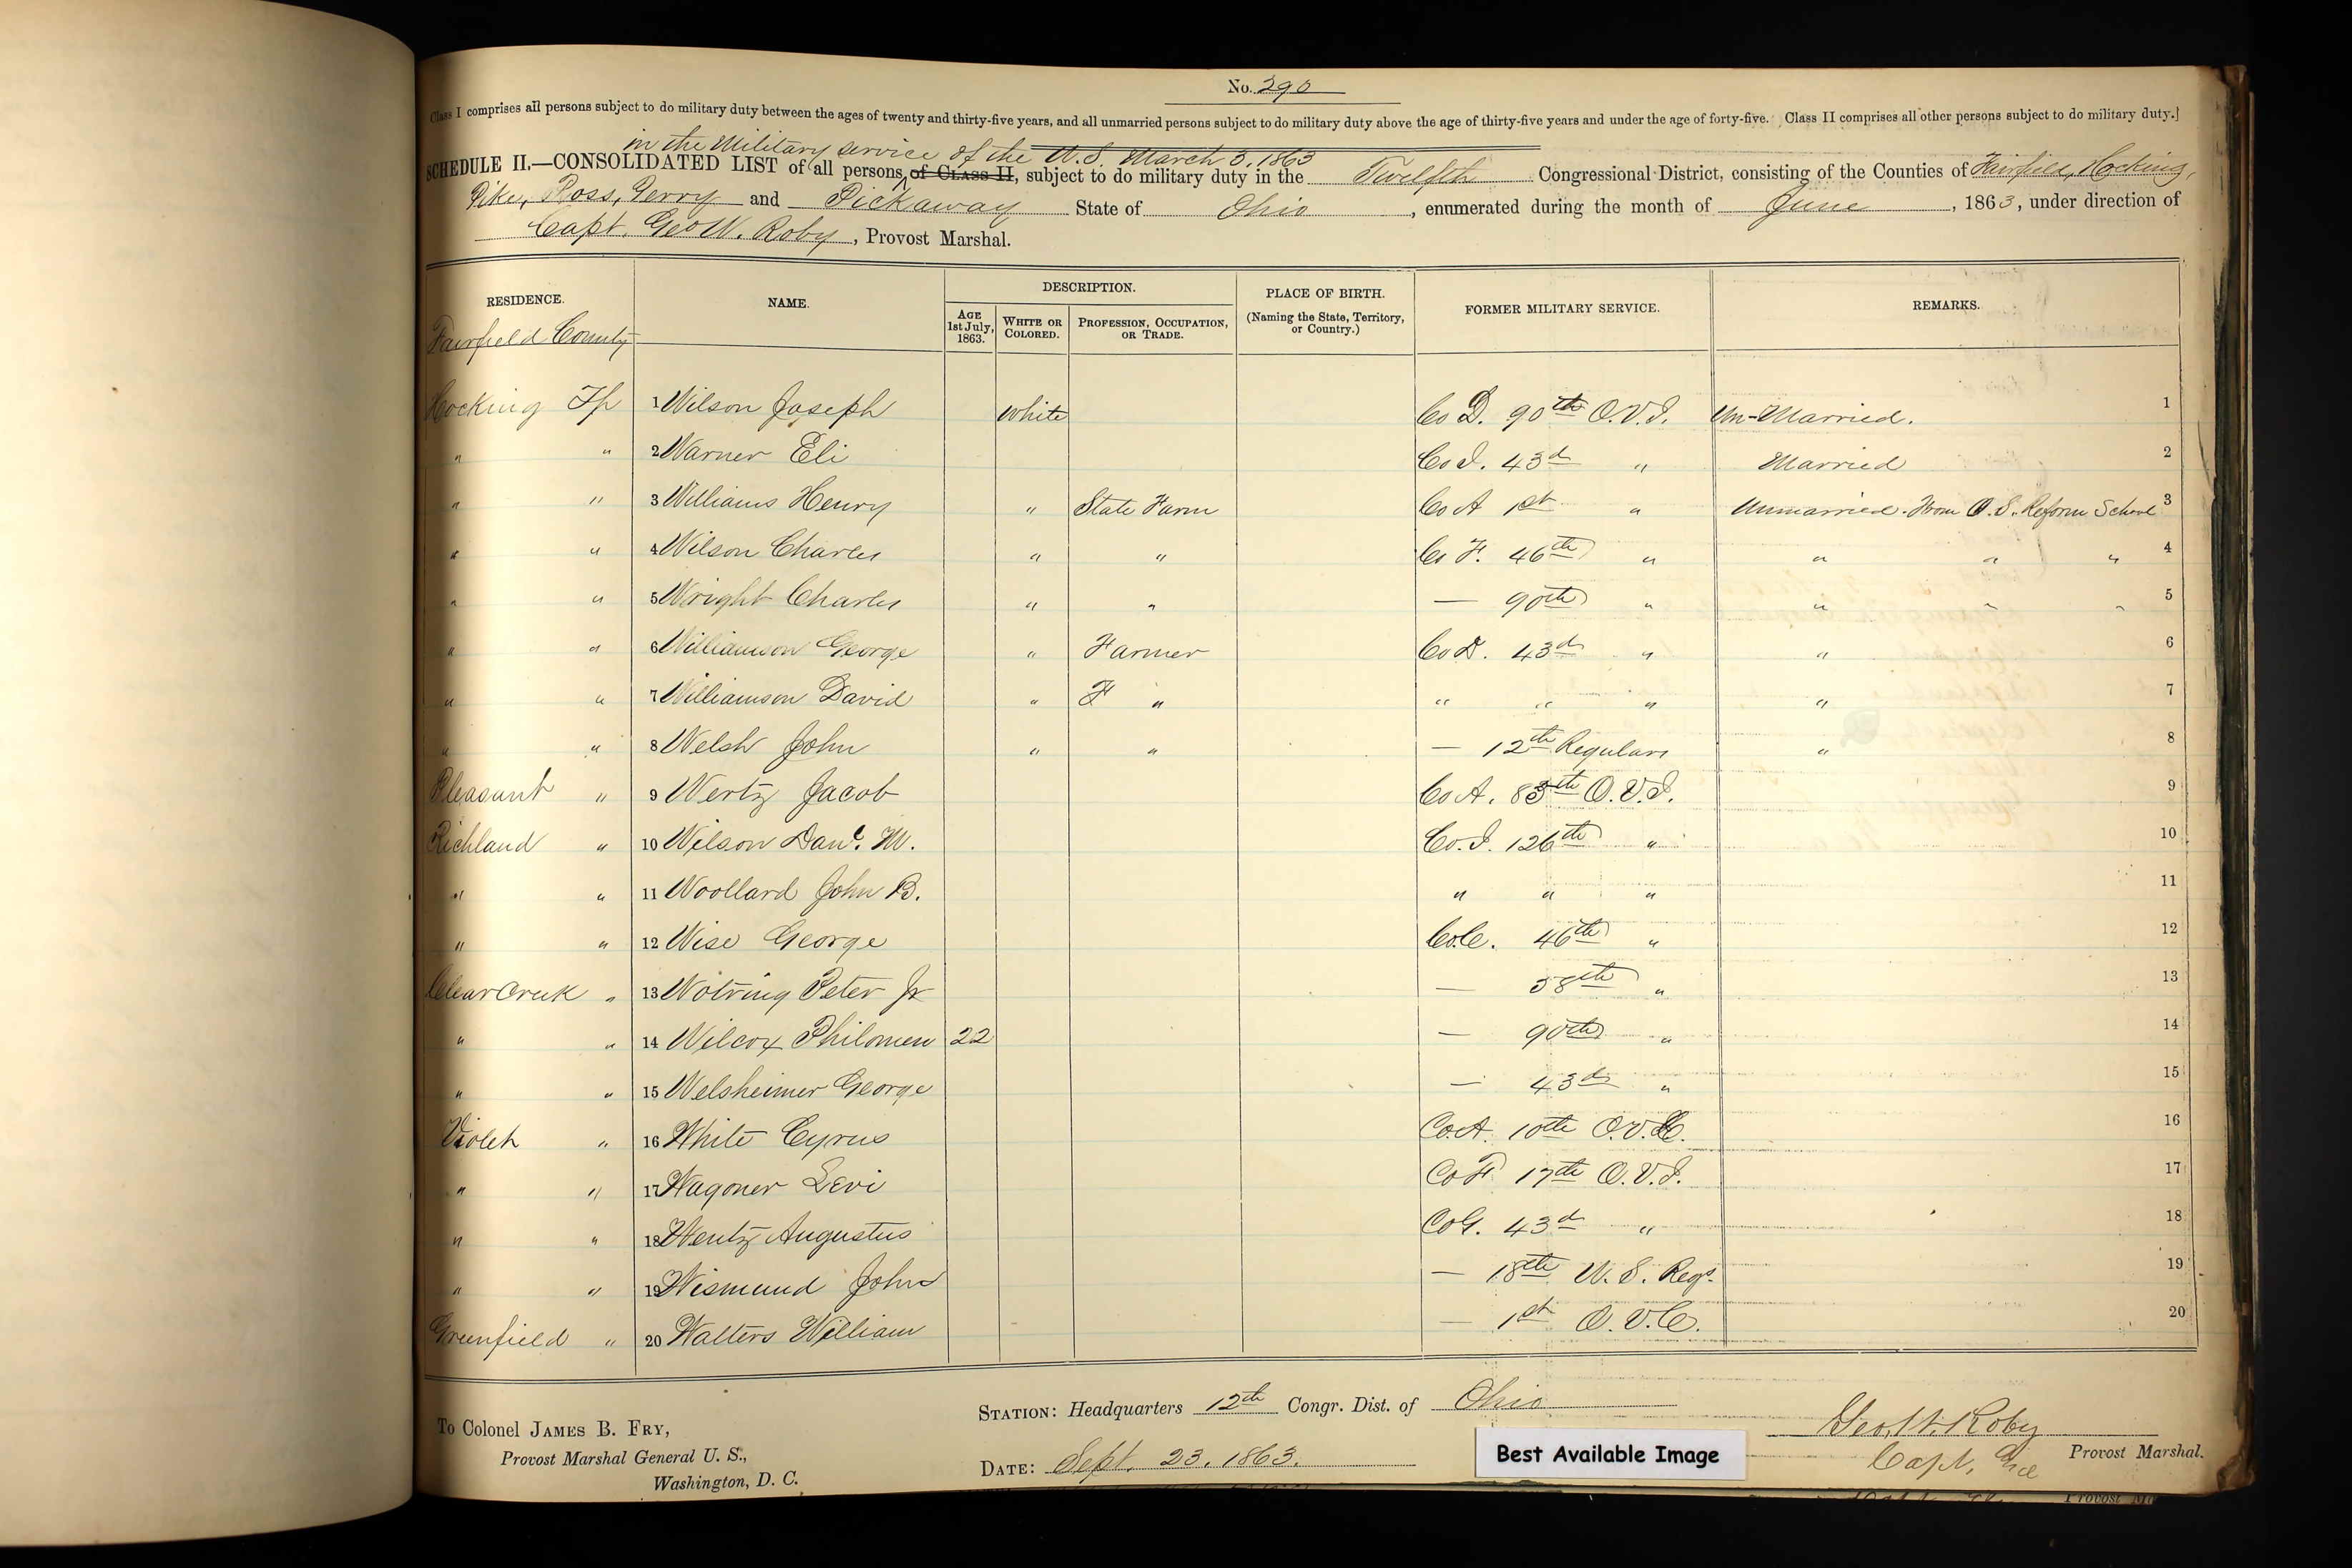 No. 290
Class I comprises all persons subject to do military duty between the ages of twenty and thirty-five years, and all unmarried persons subject to do military duty above the age of thirty-five years and under the age of forty-five. Class II comprises all other persons subject to do military duty.]
in the Military service of the U.S. March 3. 1863
SCHEDULE II.—CONSOLIDATED LIST of all persons of Class II, subject to do military duty in the Twelfth Congressional District, consisting of the Counties of Fairfield, Hocking,
Pike, Ross, Perry and Pickaway State of Ohio, enumerated during the month of June, 1863, under direction of
Capt. Geo W. Roby, Provost Marshal.
RESIDENCE. NAME. DESCRIPTION. PLACE OF BIRTH. (Naming the State, Territory, or Country.) FORMER MILITARY SERVICE. REMARKS.
Age 1st July, 1863. White or Colored. Profession, Occupation, or Trade.
Fairfield County
Hocking Tp 1 Wilson Joseph White Co D. 90th O.V.I. Un-Married. 1
" " 2 Warner Eli Co I. 43d " Married 2
" " 3 Williams Henry " State Farm Co A 1st " Unmarried. From O.S. Reform School 3
" " 4 Wilson Charles " " Co F. 46th " " " " 4
" " 5 Wright Charles " " — 90th " " " " 5
" " 6 Williamson George " Farmer Co D. 43d " " 6
" " 7 Williamson David " F " " " " " 7
" " 8 Welsh John " " — 12th Regulars " 8
Pleasant " 9 Wertz Jacob Co A. 85th O.V.I. 9
Richland " 10 Wilson Danl. M. Co. I. 126th " 10
" " 11 Woollard John B. " " " 11
" " 12 Wise George Co C. 46th " 12
Clear Creek " 13 Wotring Peter Jr — 58th " 13
" " 14 Wilcox Philomen 22 — 90th " 14
" " 15 Welsheimer George — 43d " 15
Violet " 16 White Cyrus Co. A. 10th O.V.C. 16
" " 17 Wagoner Levi Co F. 17th O.V.I. 17
" " 18 Wentz Augustus Co G. 43d " 18
" " 19 Wismund John — 18th U.S. Regs. 19
Greenfield " 20 Walters William — 1st O.V.C. 20
To Colonel James B. Fry,
Provost Marshal General U. S.,
Washington, D. C.
Station: Headquarters 12th Congr. Dist. of Ohio
Date: Sept. 23. 1863.
Best Available Image
Geo. W. Roby
Capt. Provost Marshal.